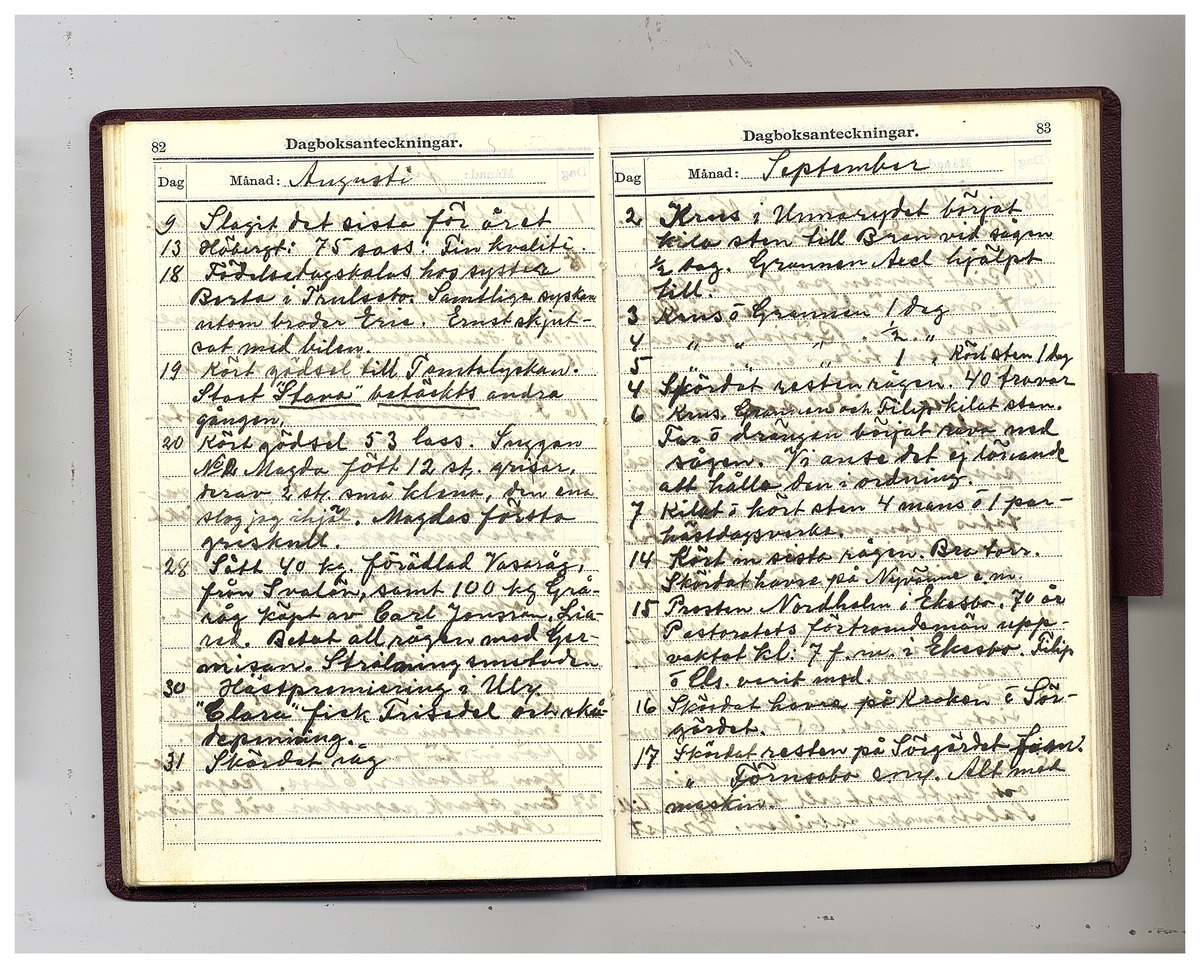 82
Dagboksanteckningar.
Dag Månad: Augusti
9 Slagit det sista för året
13 Höbergt: 75 lass. Fin kvalité.
18 Födelsedagskalas hos syster
Berta i Trulsabo. Samtliga syskon
utom broder Eric. Ernst skjut-
sat med bilen.
19 Kört gödsel till Tomtalyckan.
Stoet "Stava" betäckts andra
gången.
20 Kört gödsel 53 lass. Suggan
No 2 Magda fött 12 st. grisar,
derav 2 st. små klena, den ena
slog jag ihjäl. Magdas första
griskull.
28 Sått 40 kg. förädlad Vasaråg,
från Svalöv, samt 100 kg Grå-
råg köpt av Carl Jonsson, Lia-
red. Betat all rågen med Ger-
misan.
30 Hästpremiering i Ulr.
"Clara" fick Frisedel och skå-
depenning.
31 Skördat råg
83
Dagboksanteckningar.
Dag Månad: September
2 Krus i Unnarydet börjat
kila sten till Bron vid sågen
½ dag. Grannen Axel hjälpt
till.
3 Krus o Grannen 1 dag
4 " " " ½ "
5 " " " 1 " Kört sten 1 dag
4 Skördat resten rågen. 40 travar
6 Krus. Grannen och Filip kilat sten.
Far o drängen börjat riva ned
sågen. Vi anse det ej lönande
att hålla den i ordning.
7 Kilat o kört sten 4 mans o 1 par-
hästdagsverke.
14 Kört in sista rågen. Bra torr.
Skördat havre på Nyvänne e.m.
15 Prosten Nordholm i Eksbo. 70 år
Pastoratets förtroendemän upp-
vaktat kl: 7 f.m. i Eksbo. Filip
o Us. varit med.
16 Skördat havre på o Sör-
gärdet.
17 Skördat resten på Sörgärdet f.m.
" Törnsabo e.m. Alt med
maskin.